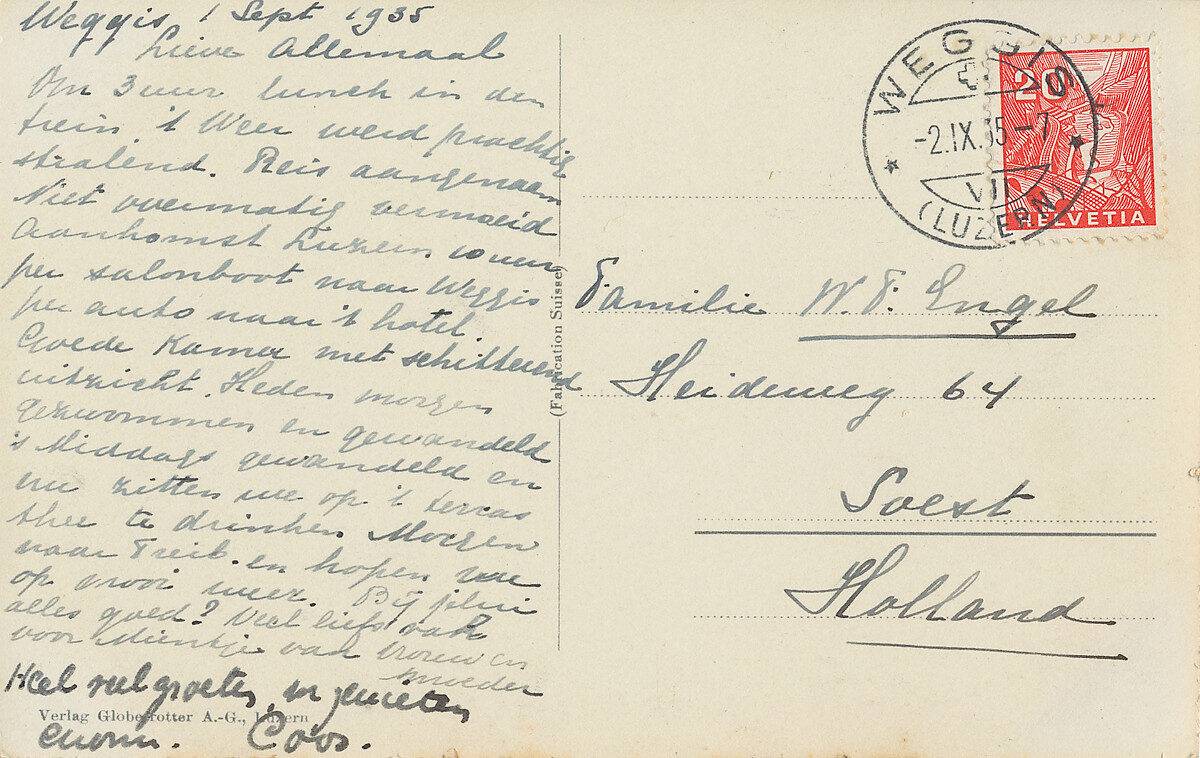 Weggis, 1 Sept 1935
Lieve Allemaal
Om 3 uur lunch in den
trein. 't Weer werd prachtig
stralend. Reis aangenaam
Niet overmatig vermoeid
Aankomst Luzern 10 uur
per salonboot naar Weggis
per auto naar 't hotel.
Goede Kamer met schitterend
uitzicht. Heden morgen
gezwommen en gewandeld
's Middags gewandeld en
nu zitten we op 't terras
thee te drinken. Morgen
naar Treib. en hopen we
op mooi weer. Bij jelui
alles goed? Veel liefs ook
voor Mientje van vrouw en
moeder
Heel veel groeten, en genieten
enorm. Coos.
Verlag Globetrotter A.-G., Luzern
(Fabrication Suisse)
WEGGIS
-2.IX.35-7
VI
(LUZERN)
20
HELVETIA
Familie W. F. Engel
Heideweg 64
Soest
Holland